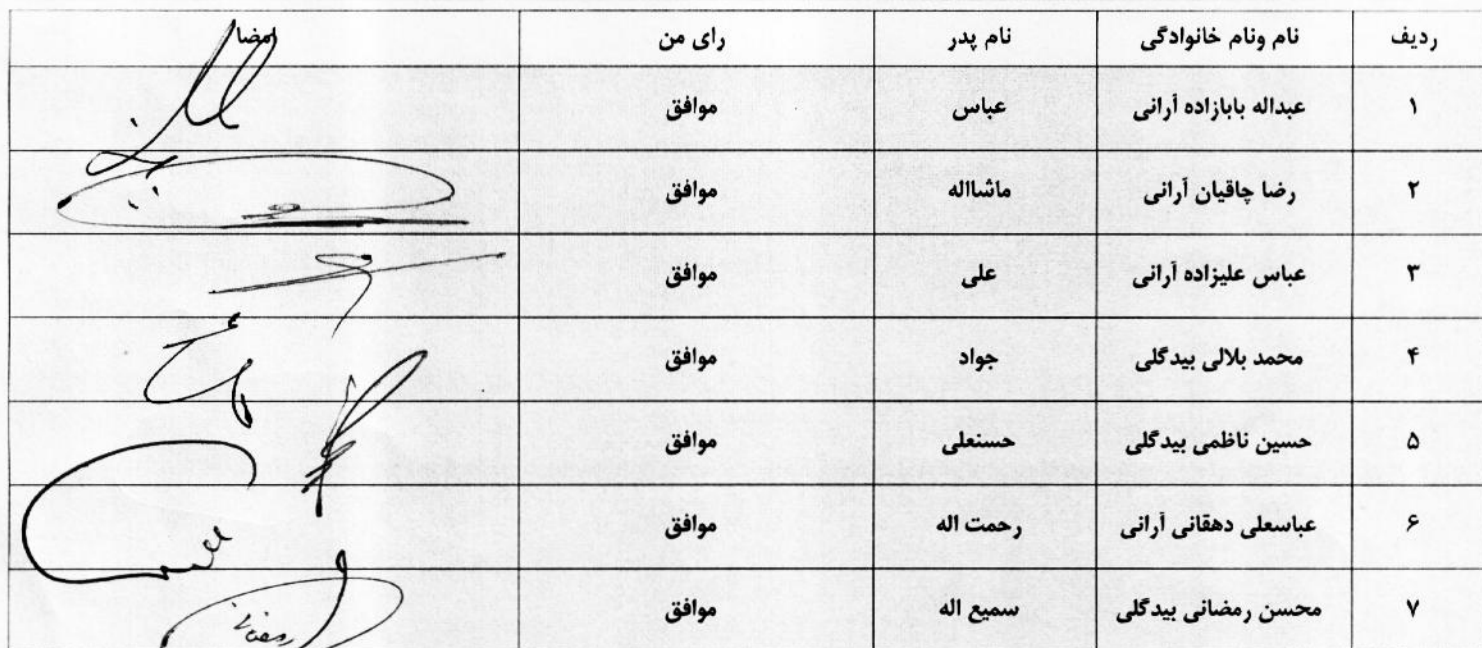 ردیف نام ونام خانوادگی نام پدر رای من امضا
۱ عبداله بابازاده آرانی عباس موافق
۲ رضا چاقیان آرانی ماشااله موافق
۳ عباس علیزاده آرانی علی موافق
۴ محمد بلالی بیدگلی جواد موافق
۵ حسین ناظمی بیدگلی حسنعلی موافق
۶ عباسعلی دهقانی آرانی رحمت اله موافق
۷ محسن رمضانی بیدگلی سمیع اله موافق